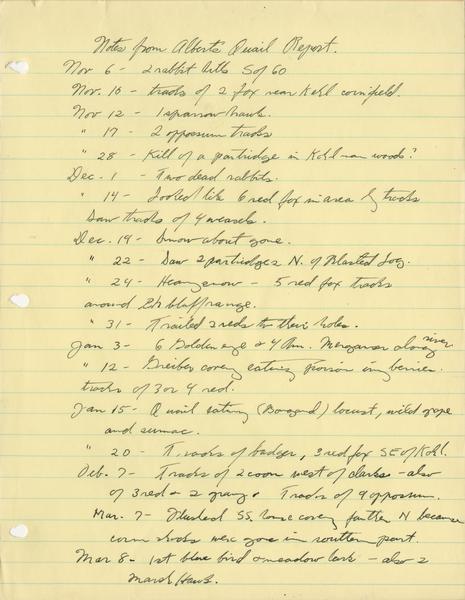 Notes from Albert's Quail Report.
Nov 6 - 2 rabbit kills S of 60
Nov. 10 - tracks of 2 fox near Kohl cornfield.
Nov 12 - 1 sparrow hawk.
" 17 - 2 oppossum tracks
" 28 - Kill of a partridge in Kohl woods?
Dec. 1 - Two dead rabbits.
" 14 - Looked like 6 red fox in area by tracks
Saw tracks of 4 weasels.
Dec. 19 - Snow about gone.
" 22 - Saw 2 partridges N. of Blasted Log.
" 24 - Heavy snow - 5 red fox tracks
around bluff range.
" 31 - Trailed 2 reds to their holes.
Jan 3 - 6 Golden eye & 4 Am. Merganser along river
" 12 - covey eating poison ivy berries.
tracks of 3 or 4 red.
Jan 15 - Quail eating locust, wild grape
and sumac.
" 20 - Tracks of badger, 3 red fox SE of Kohl.
Feb. 7 - Tracks of 2 coon west of clarks - also
of 3 red & 2 gray. Tracks of 9 opossum.
Mar. 7 - Flushed SS. covey farther N because
corn shocks were gone in southern part.
Mar 8 - 1st blue bird & meadow lark - also 2
Marsh Hawk.